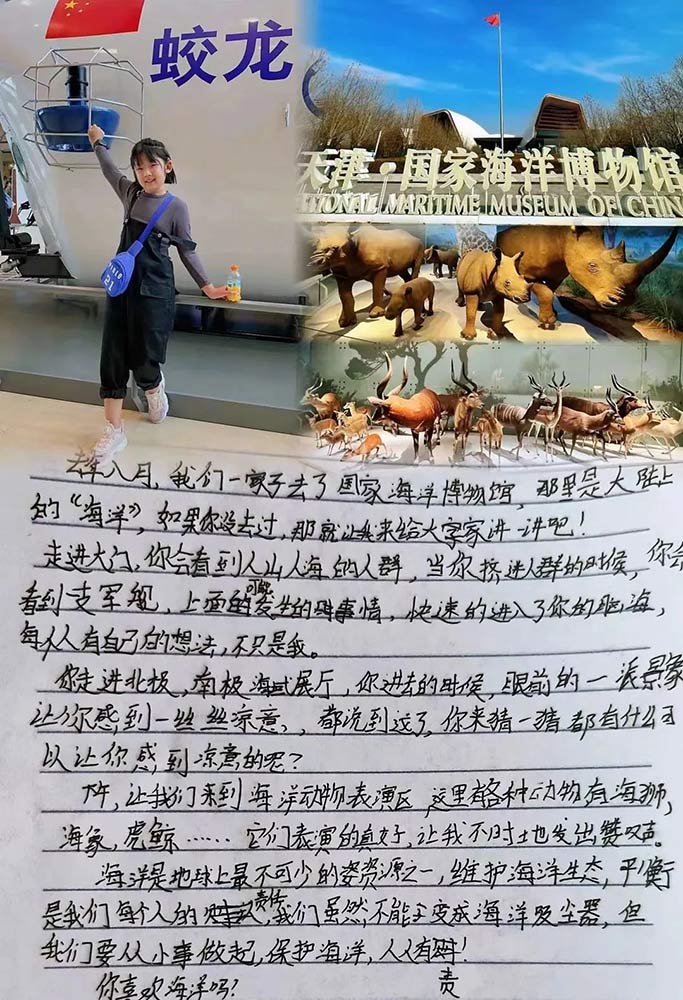 蛟龙
天津·国家海洋博物馆
NATIONAL MARITIME MUSEUM OF CHIN
21
去年八月，我们一家子去了国家海洋博物馆，那里是大陆上
的“海洋”，如果你没去过，那就让我来给大家讲一讲吧！
走进大门，你会看到人山人海的人群，当你挤进人群的时候，你会
看到支军舰，上面的可能发生的事情，快速的进入了你的脑海，
每个人有自己的想法，不只是我。
你走进北极，南极海域展厅，你进去的时候，眼前的一派景象
让你感到一丝丝凉意，都说到这了，你来猜一猜都有什么可
以让你感到凉意的呢？
下午，让我们来到海洋动物表演区，这里有各种动物有海狮，
海象，虎鲸……它们表演的真好，让我不时地发出赞叹声。
海洋是地球上最不可少的资源之一，维护海洋生态，平衡
是我们每个人的责任，我们虽然不能变成海洋吸尘器，但
我们要从小事做起，保护海洋，人人有责！
你喜欢海洋吗？